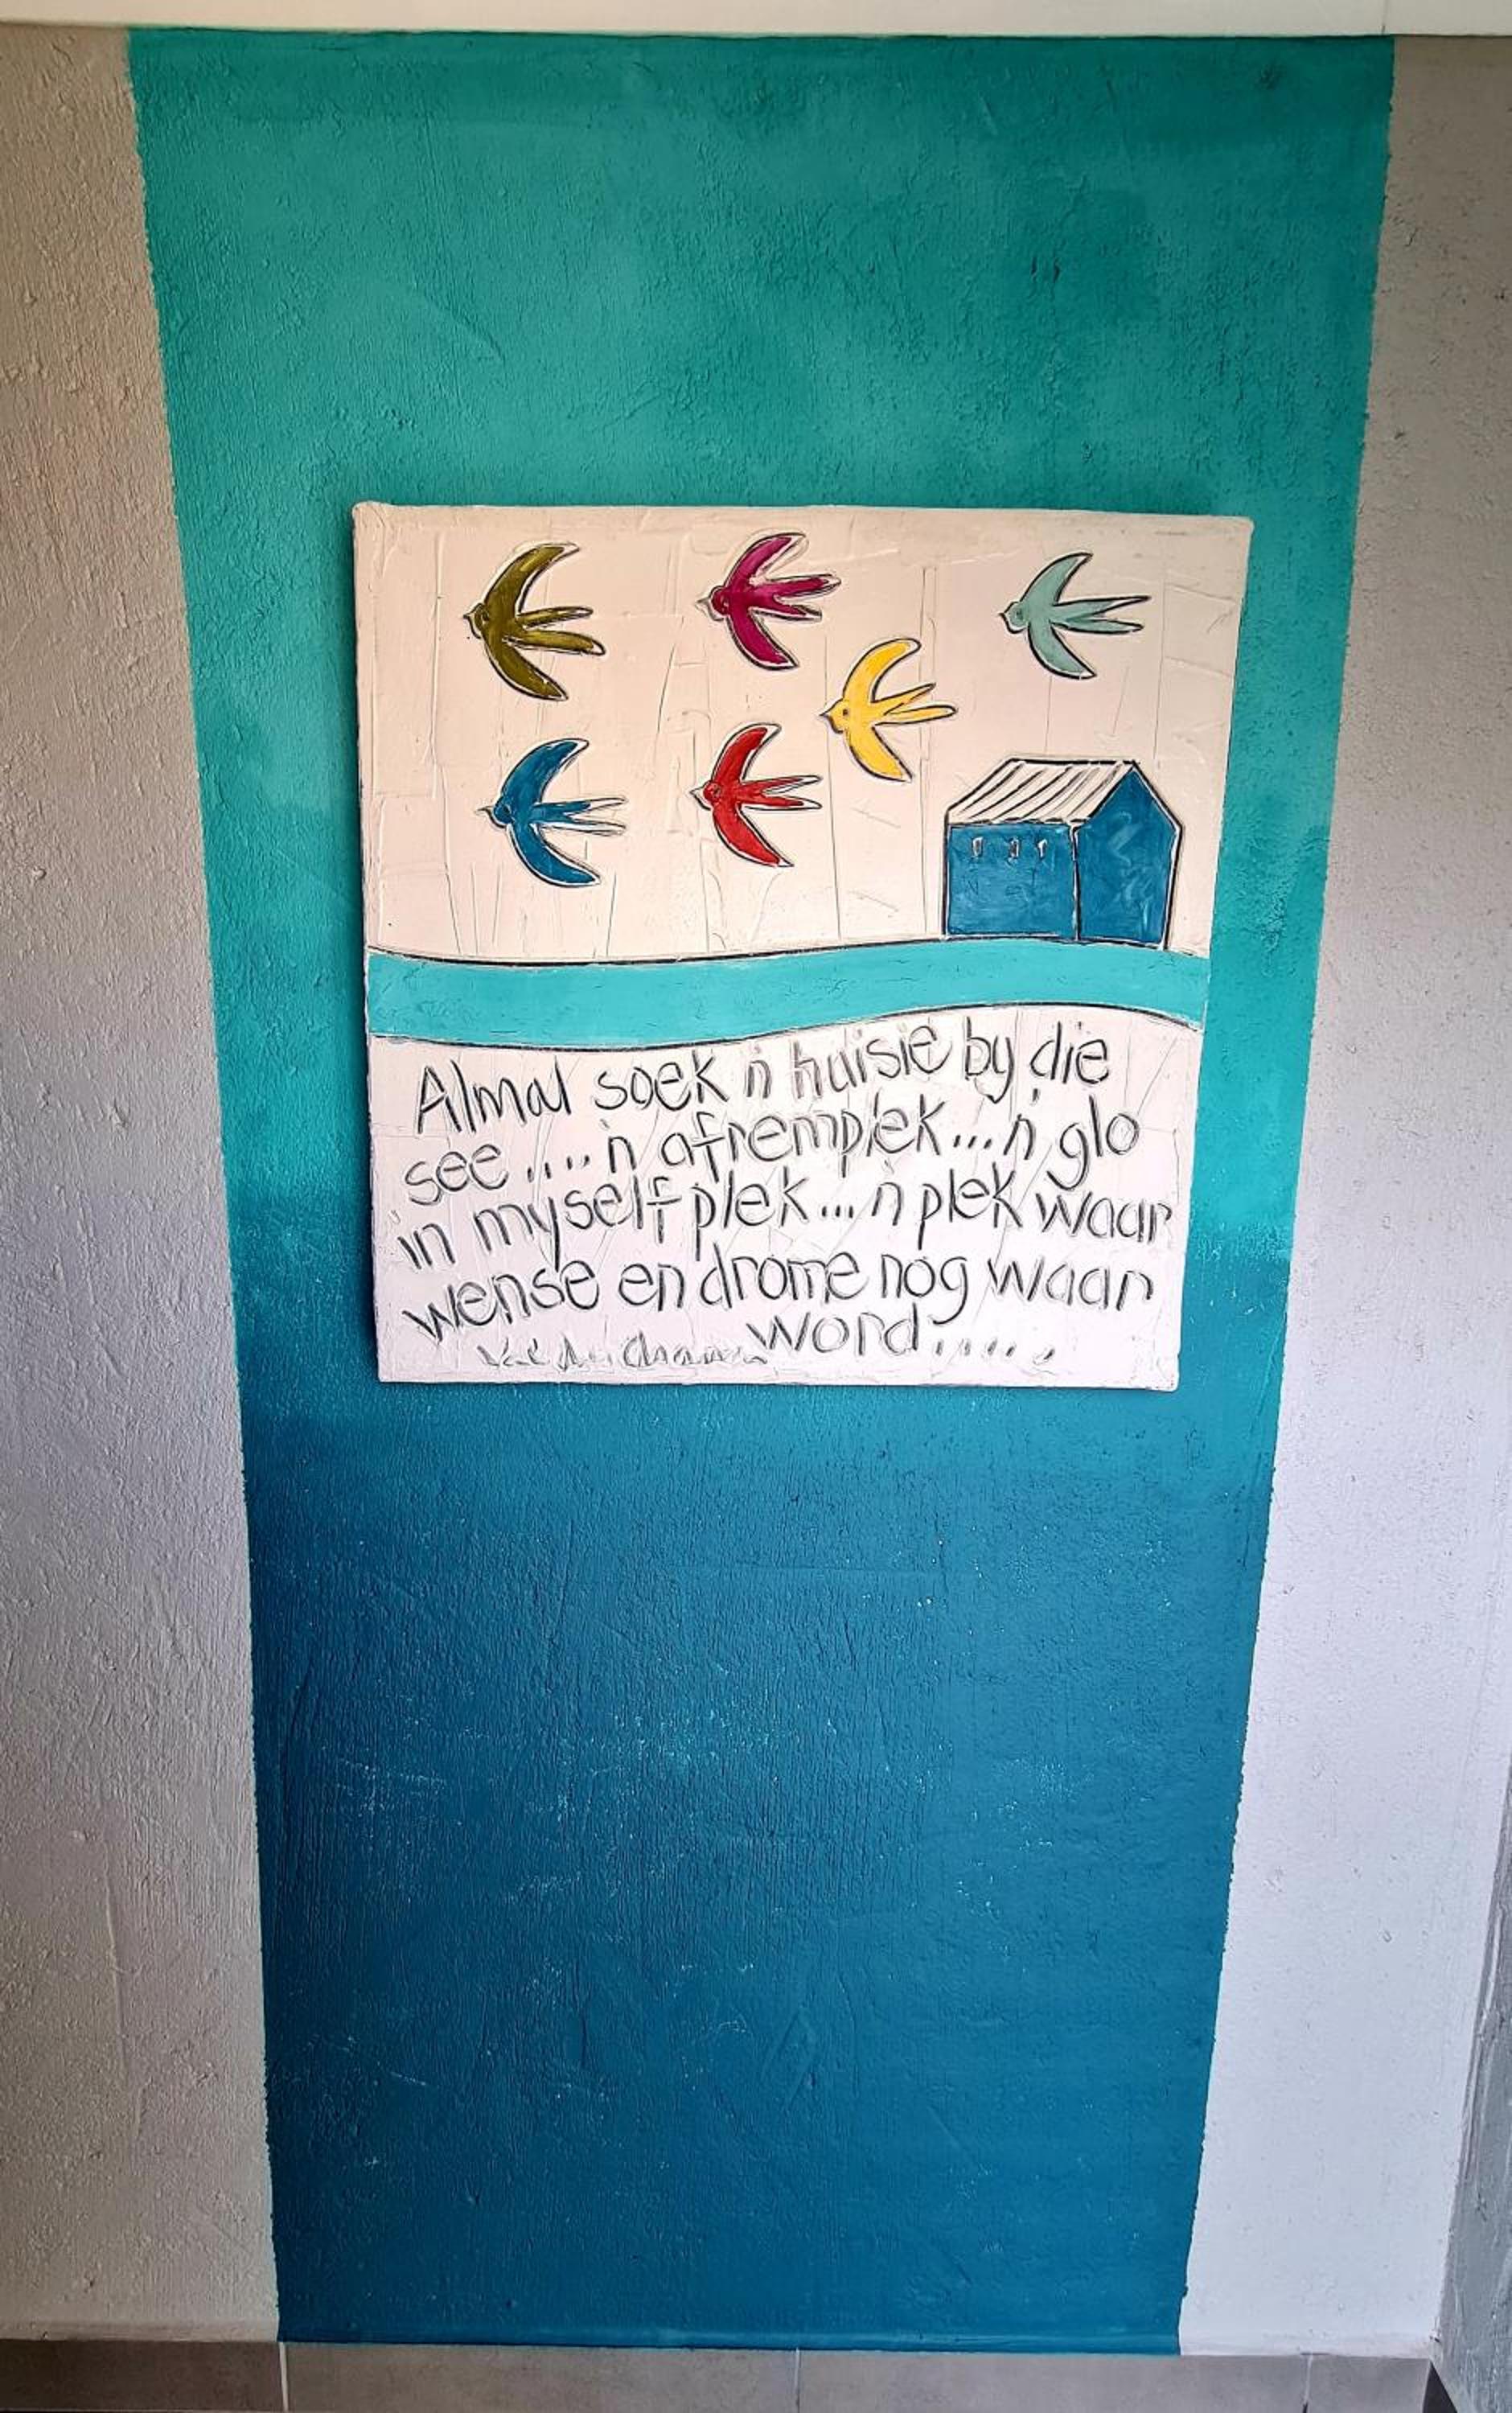 Almal soek 'n huisie by die
see....'n afremplek...'n glo
in myself plek...'n plek waar
wense en drome nog waar
word.....